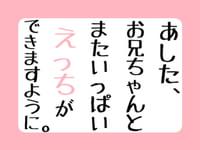 あした、
お兄ちゃんと
またいっぱい
えっちが
できますように。